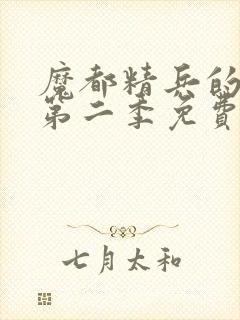 魔都精兵的
第二季免费
七月太和